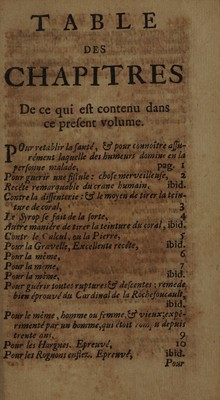 TABLE
DES
CHAPITRES
De ce qui est contenu dans
ce present volume.
POur retablir la santé, & pour connoître assu-
rément laquelle des humeurs domine en la
personne malade, pag. 1
Pour guerir une fistule : chose merveilleuse, 2
Recete remarquable du crane humain, ibid.
Contre la dissenterie : & le moyen de tirer la tein-
ture de coral, 3
Le Syrop se fait de la sorte, 4
Autre maniére de tirer la teinture du coral, ibid.
Contre le Calcul, ou la Pierre, 5
Pour la Gravelle, Excellente recéte, ibid.
Pour la même, 6
Pour la même, 7
Pour la même, ibid.
Pour guérir toutes ruptures & descentes ; remede
bien éprouvé du Cardinal de la Rochefoucault,
ibid.
Pour le même, homme ou femme, & vieux ; expé-
rimenté par un homme, qui étoit rompu depuis
trente ans, 9
Pour les Hargnes. Eprouvé, 10
Pour les Rognons enflez. Eprouvé, ibid.
Pour